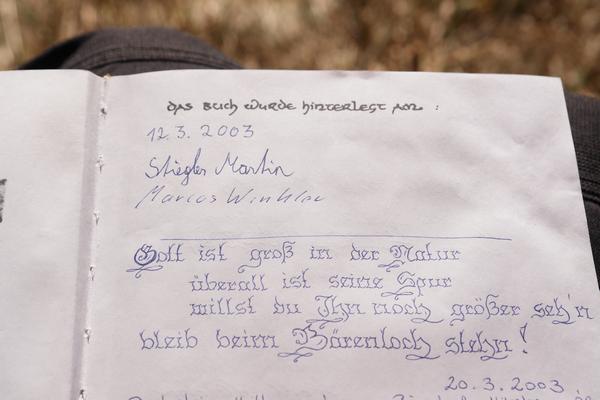 das Buch wurde hinterlegt am :
12.3.2003
Stiegler Martin
Marcus Winkler
Gott ist groß in der Natur
überall ist seine Spur
willst du Ihn noch größer seh'n
bleib beim Bärenloch stehn!
20.3.2003